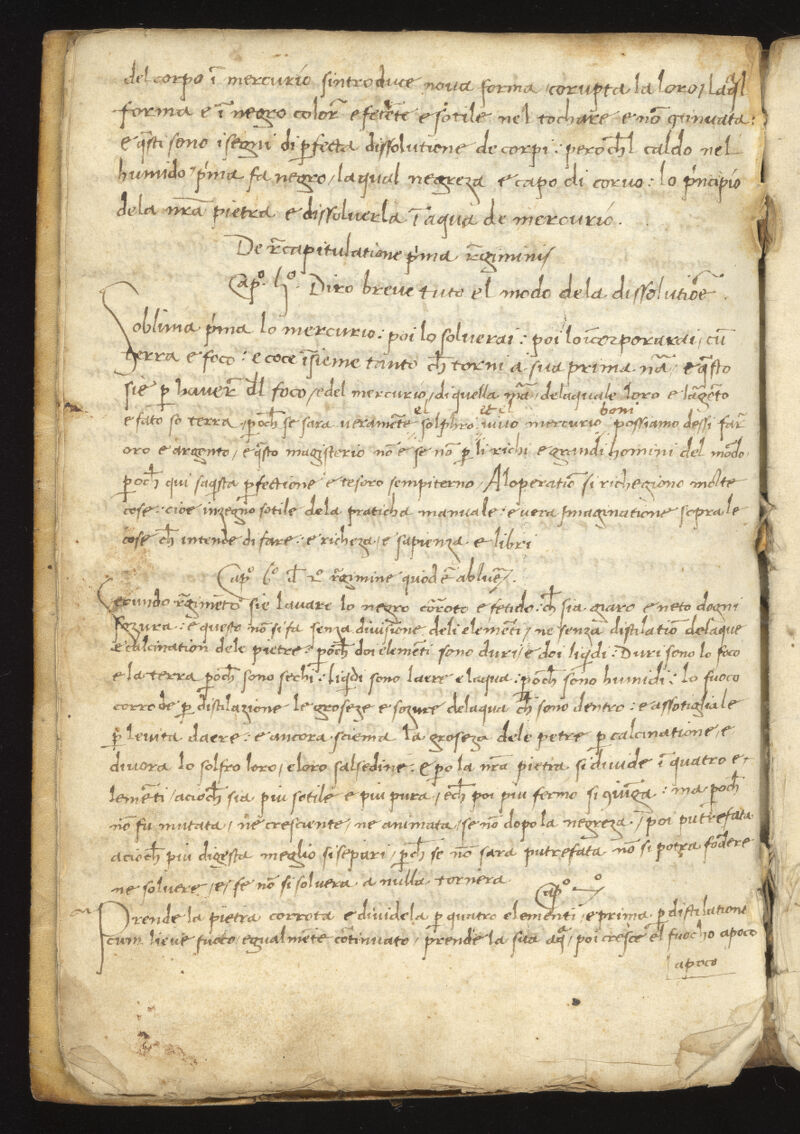 del corpo ī mercurio sintroduce nova forma / corupta la loro / la q̄l
forma e ī negro color̄ e fetēte e sotile nel tochare e nō q̄nuata:
e q̄sti sono i segni di p̄fecta dissolutione de corpi: pero ch̄l caldo nel
humido p̄ma fa negro / la qual negreza e capo di corvo: lo p̄ncipio
de la nr̄a pietra e dissolverla ī aqua de mercurio.
De r̄capitulatione p̄ma r̄giminis
Cap.º hº. Diro breve tuto el modo de la dissolutiōe.
Soblima p̄ma lo mercurio: poi lo solverai: poi lo īcorporarai / cū
terra e foco: e coce īsieme tanto ch̄ torni a sua prima nā / e q̄sto
sie p̄ haver̄ dl̄ foco / e del mercurio / di quella mā / dela quale loro e largēto
e fato so terra / p̄och̄ se sara veramēte el solphro et el vivo mercurio boni possiamo dessi far̄
oro e argento / e q̄sto magisterio nō e se nō p̄ li richi e grandi homini del mōdo
p̄och̄ qui saq̄sta p̄fectione e tesoro sempiterno / Al operatiō si richegiono molte
cose: cioe inzegno sotile dela praticha manuale: e vera ymaginatione sopra le
cose ch̄ intende di fare: e richeza / e sapienza e libri
Cap.º 6º dl̄ 2º r̄gimine quod ē abluer̄.
Secundo r̄gimēto sie lavare lo negro cor̄oto e fetido: ch̄ sia giaro e neto dogni
sozura: e questo nō si fa senza divisione deli elemēti / ne senza distilatiō dele aque
e calcination dele pietre: p̄och̄ doi elemēti sono duri / e doi liq̄di: Duri sono lo foco
e la terra p̄och̄ sono sechi: liq̄di sono laere e laqua: p̄och̄ sono humidi: lo fuoco
corrode p̄ distilazione le groseze e sozure delaqua ch̄ sono dentro: e assotigliale
p̄ levita daere: e ancora sciema la groseza dele petre p̄ calcinatione / e
divora lo solfro loro / e loro salsedine: e p̄o la nr̄a pietra si divide ī quatro e-
lemēti / acioch̄ sia piu sotile e piu pura / ech̄ poi piu fermo si 9iūga: ma p̄och̄
nō fu mutata / ne crescente / ne animata / se nō dopo la negreza: / poi putrefata
acioch̄ piu digesta meglio si separi / p̄ch̄ se nō sara putrefata nō si potra fōdere
ne solvere / e / se nō si solvera a nulla tornera
Cap.º 7º
Prende la pietra corrota e dividela p̄ quatro elementi / e prima p̄ distilatione
cum lieve fuoco egualmēte cōtinuato / p̄rende la sua aq̄ / poi cresce el fuocho apoco
apoco